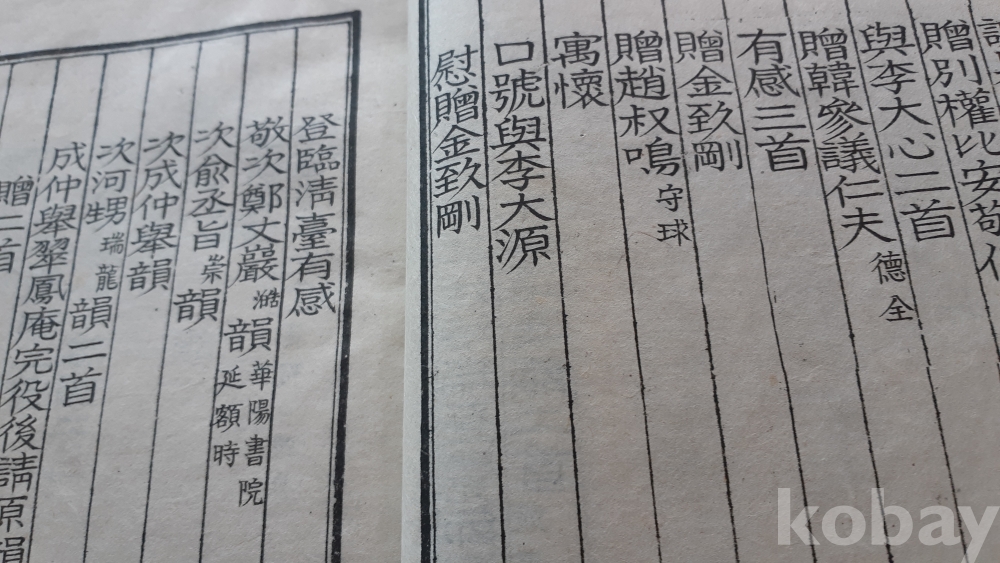 贈別權比安敬
與李大心二首
贈韓參議仁夫德全
有感三首
贈金致剛
贈趙叔鳴守球
寓懷
口號與李大源
慰贈金致剛
登臨淸臺有感
敬次鄭文巖澔韻華陽書院延額時
次俞丞旨崇韻
次成仲擧韻
次河甥瑞龍韻二首
成仲擧翠鳳庵完役後請原韻
贈二首
kobay